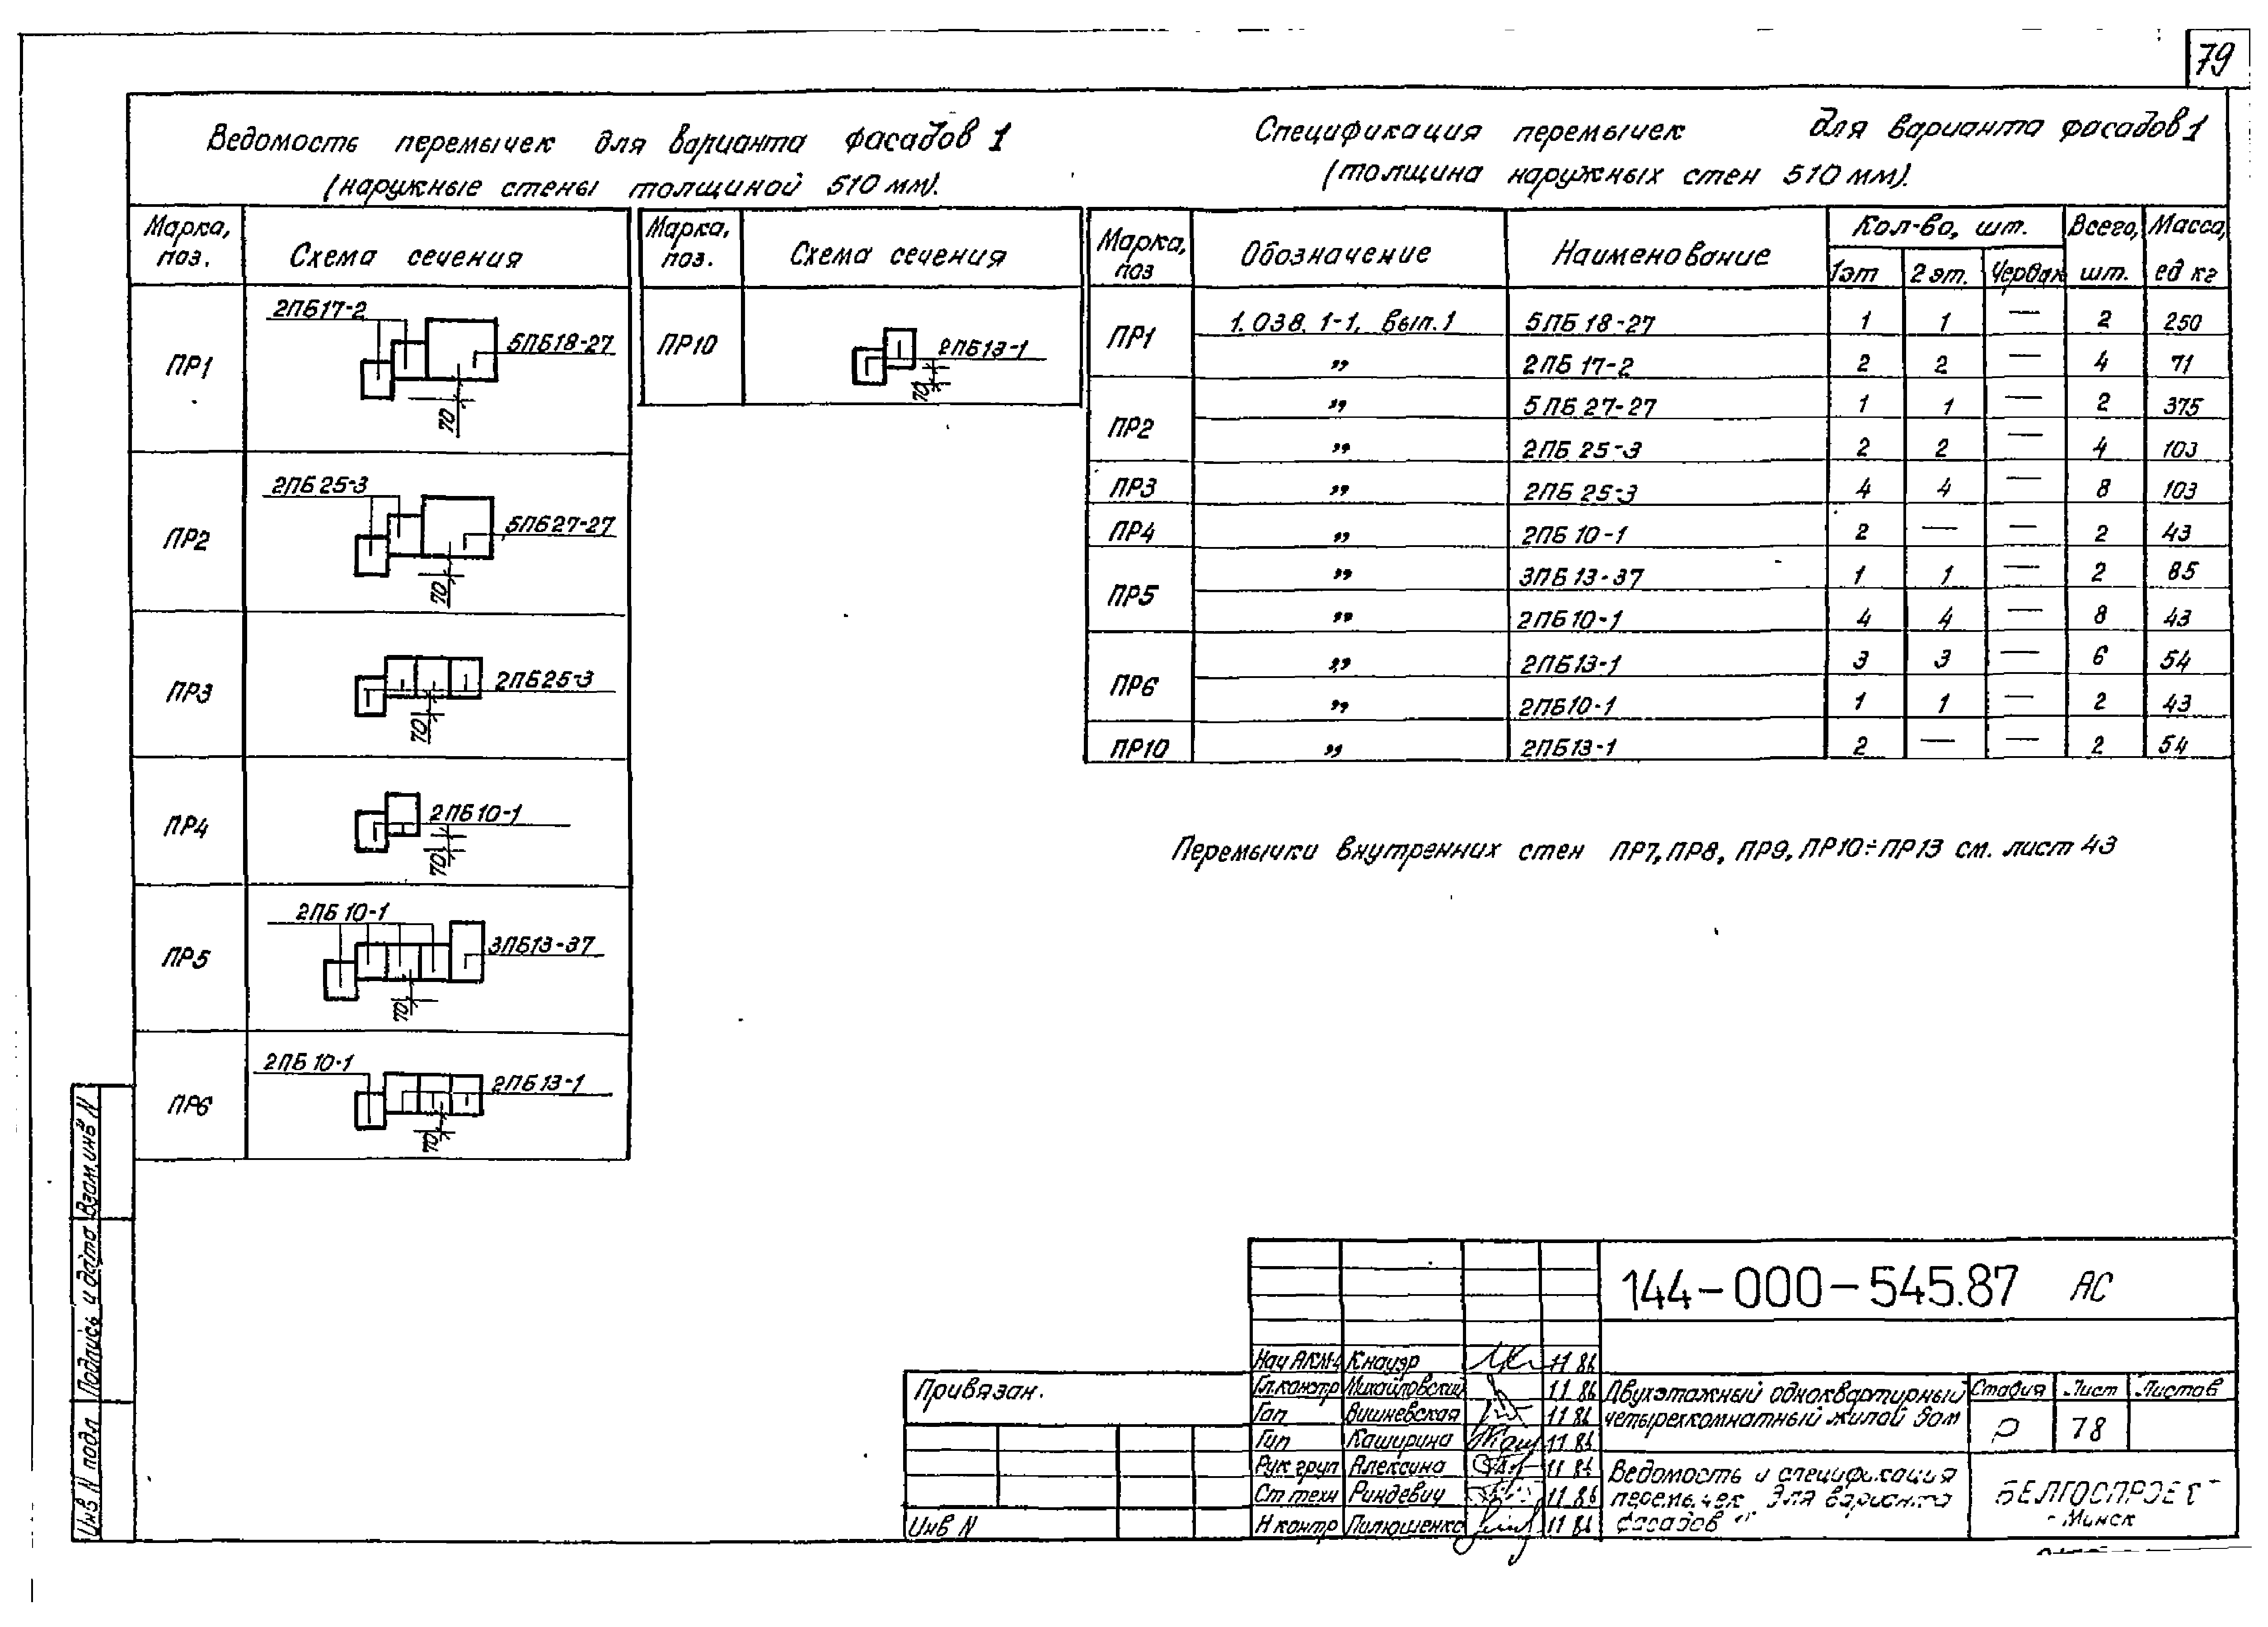 79
Ведомость перемычек для варианта фасадов 1
(наружные стены толщиной 510 мм).
Марка, поз.
Схема сечения
ПР1
2ПБ17-2
5ПБ18-27
70
ПР2
2ПБ25-3
5ПБ27-27
70
ПР3
2ПБ25-3
70
ПР4
2ПБ10-1
70
ПР5
2ПБ10-1
3ПБ13-37
70
ПР6
2ПБ10-1
2ПБ13-1
70
Марка, поз.
Схема сечения
ПР10
2ПБ13-1
70
Спецификация перемычек для варианта фасадов 1
(толщина наружных стен 510 мм).
Марка, поз Обозначение Наименование Кол-во, шт. Всего, шт. Масса, ед кг
1эт 2 эт. Чердак
ПР1 1.038.1-1, вып.1 5ПБ 18-27 1 1 — 2 250
„ 2ПБ 17-2 2 2 — 4 71
ПР2 „ 5ПБ 27-27 1 1 — 2 375
„ 2ПБ 25-3 2 2 — 4 103
ПР3 „ 2ПБ 25-3 4 4 — 8 103
ПР4 „ 2ПБ 10-1 2 — — 2 43
ПР5 „ 3ПБ 13-37 1 1 — 2 85
„ 2ПБ10-1 4 4 — 8 43
ПР6 „ 2ПБ13-1 3 3 — 6 54
„ 2ПБ10-1 1 1 — 2 43
ПР10 „ 2ПБ13-1 2 — — 2 54
Перемычки внутренних стен ПР7, ПР8, ПР9, ПР10÷ПР13 см. лист 43
Взам. инв N
Подпись и дата
Инв N подл
Привязан.
Инв N
144-000-545.87 АС
Нач АКМ-4 Кнауэр 11 86
Гл.констр Михайловский 11 86
Гап Вишневская 11 86
Гип Каширина 11 86
Рук груп Алексина 11 86
Ст техн Риндевич 11 86
Н контр Пилюшенко 11 86
Двухэтажный одноквартирный
четырехкомнатный жилой дом
Стадия Лист Листов
Р 78
Ведомость и спецификация
перемычек для варианта
фасадов
БЕЛГОСПРОЕКТ
Минск